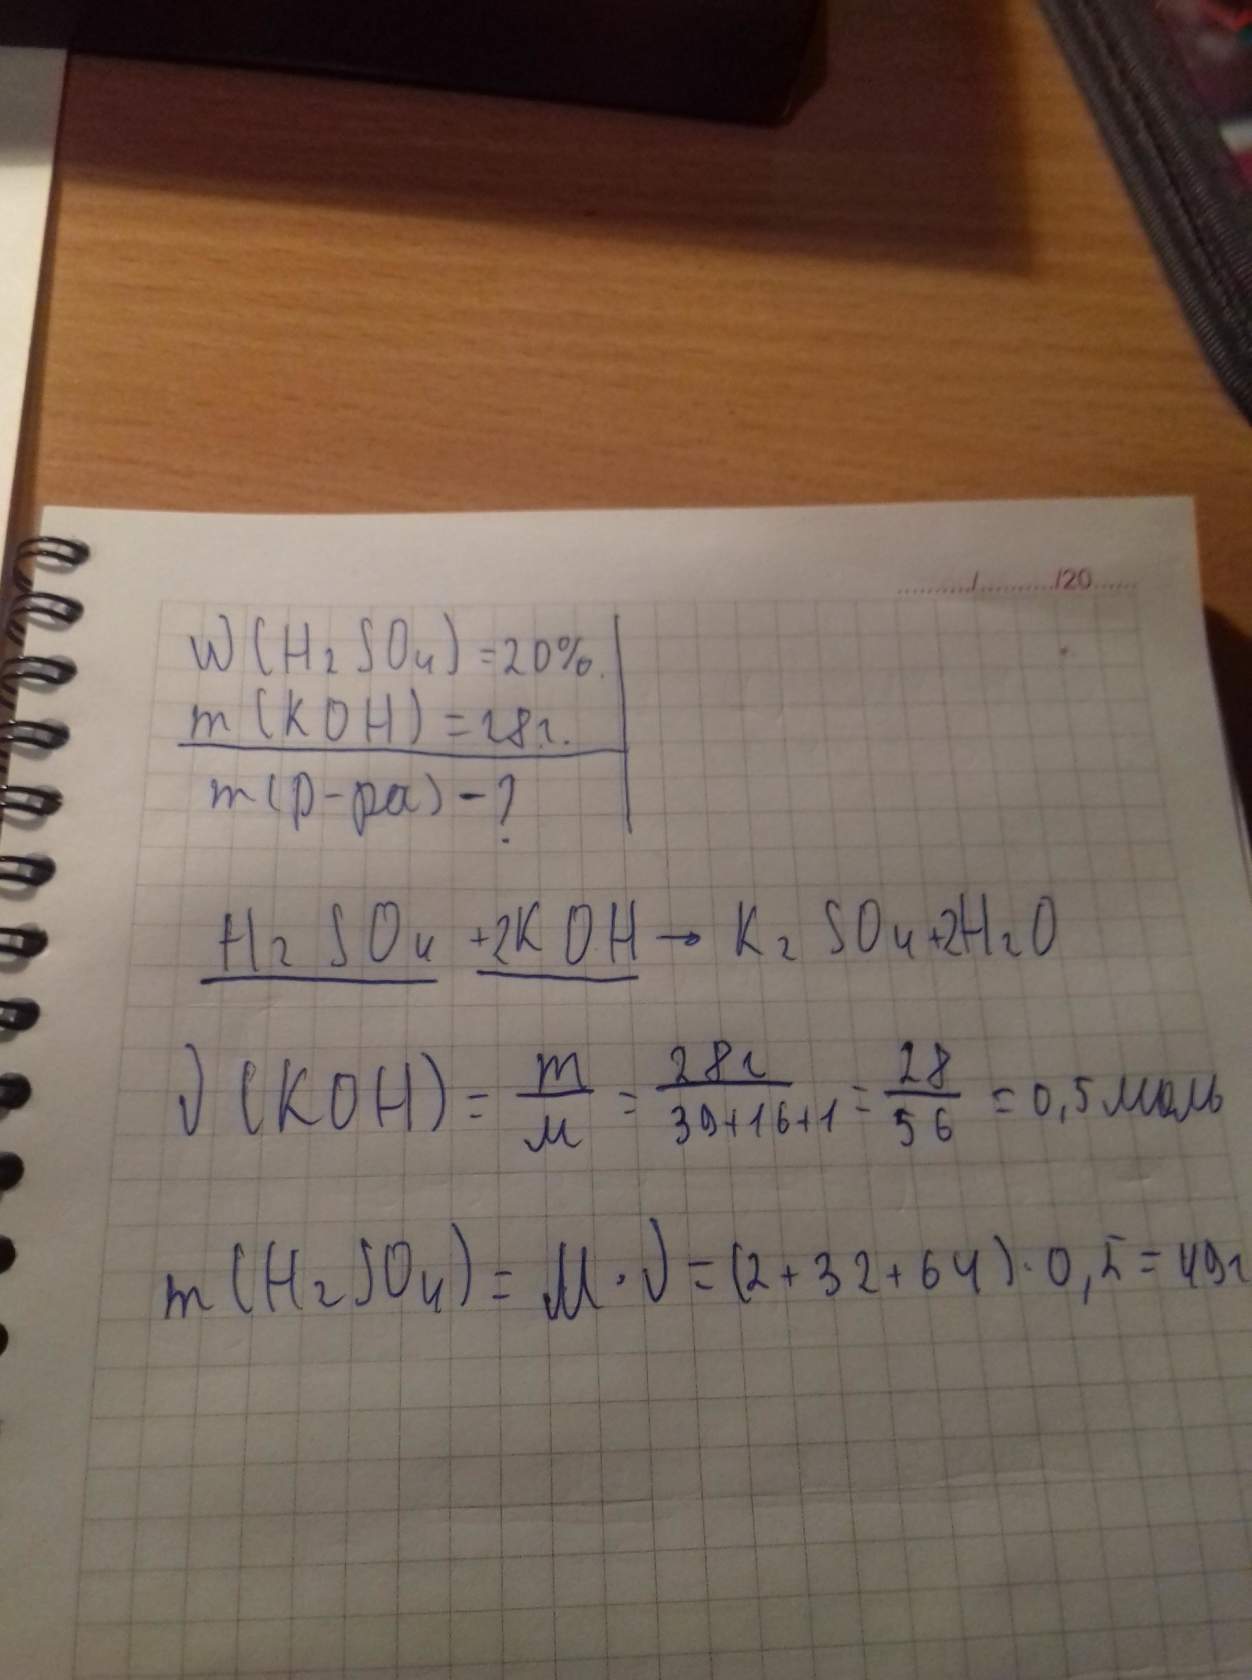 ........../........../20......
W(H₂SO₄)=20%.
m(KOH)=28г.
m(р-ра)-?
H₂SO₄+2KOH→K₂SO₄+2H₂O
ν(KOH)=m/M=28г/39+16+1=28/56=0,5моль
m(H₂SO₄)=M·ν=(2+32+64)·0,5=49г